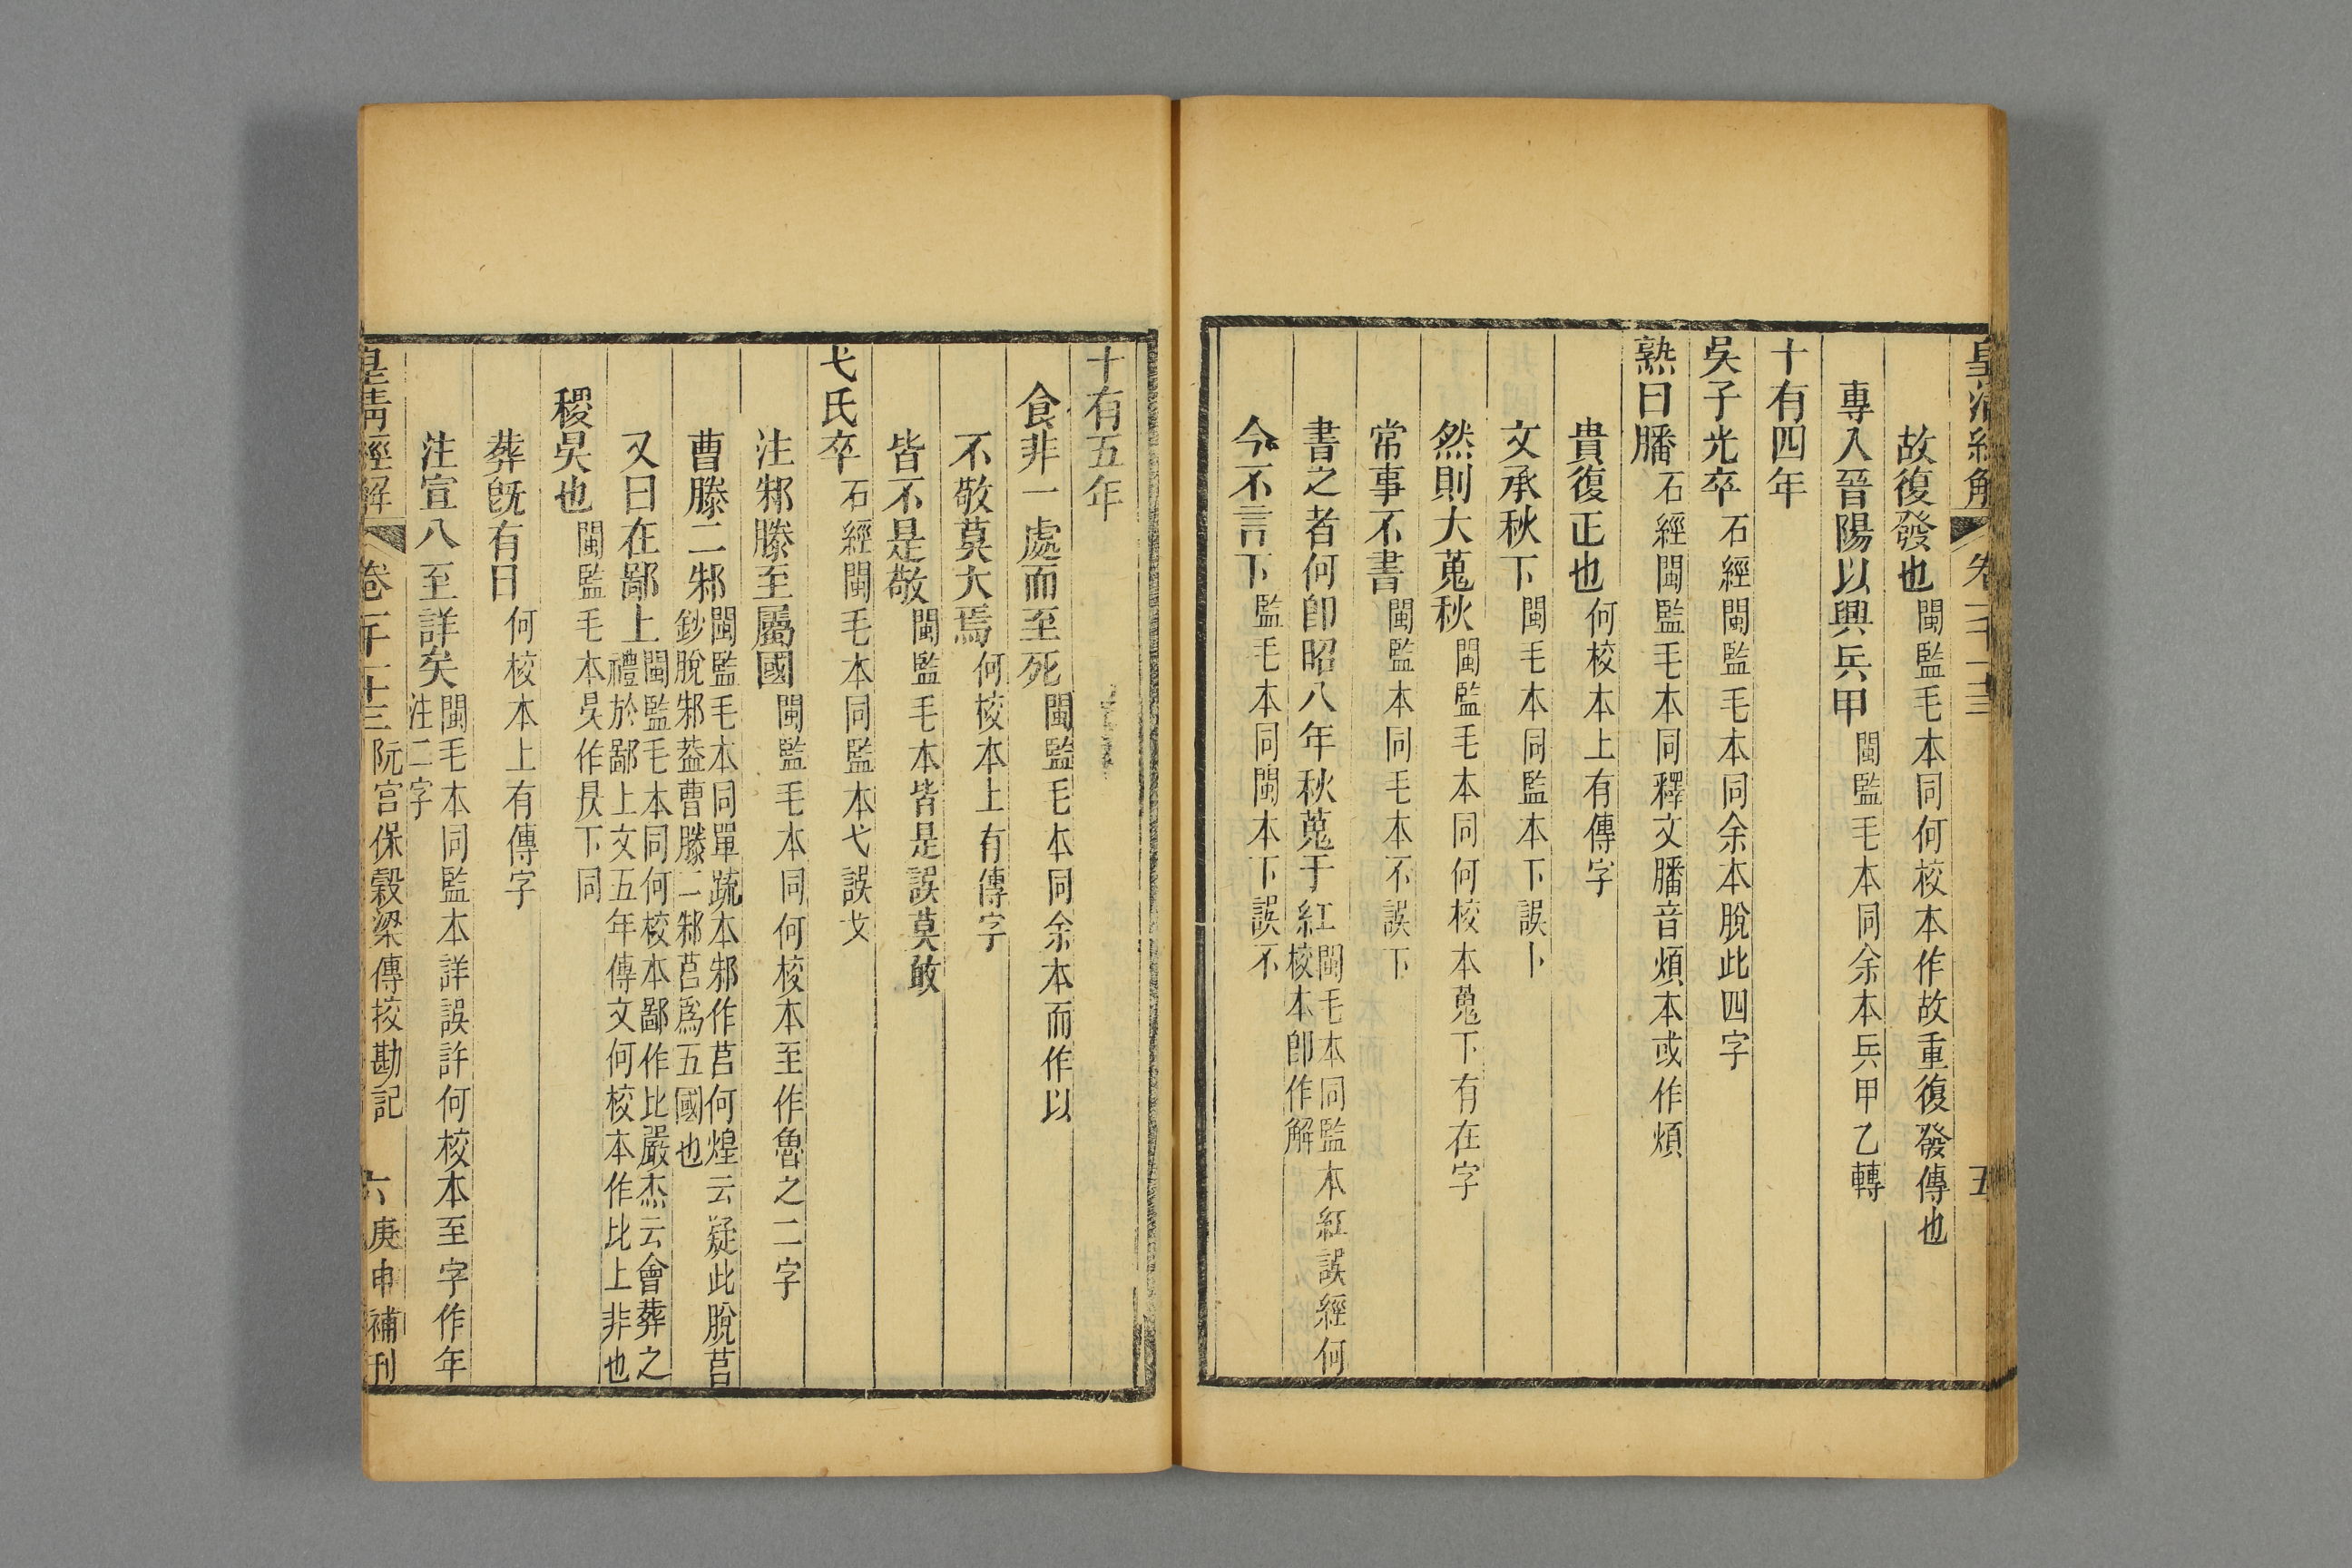 皇清經解 卷一千二十三 五
故復發也閩監毛本同何校本作故重復發傳也
專入晉陽以興兵甲閩監毛本同余本兵甲乙轉
十有四年
吳子光卒石經閩監毛本同余本脫此四字
熟曰膰石經閩監毛本同釋文膰音煩本或作煩
貴復正也何校本上有傳字
文承秋下閩毛本同監本下誤卜
然則大蒐秋閩監毛本同何校本蒐下有在字
常事不書閩監本同毛本不誤下
書之者何卽昭八年秋蒐于紅閩毛本同監本紅誤經何
校本卽作解
今不言下監毛本同閩本下誤不
十有五年
食非一處而至死閩監毛本同余本而作以
不敬莫大焉何校本上有傳字
皆不是敬閩監毛本皆是誤莫敢
弋氏卒石經閩毛本同監本弋誤戈
注邾滕至屬國閩監毛本同何校本至作魯之二字
曹滕二邾閩監毛本同單疏本邾作莒何煌云疑此脫莒
鈔脫邾葢曹滕二邾莒爲五國也
又曰在鄙上閩監毛本同何校本鄙作比嚴杰云會葬之
禮於鄙上文五年傳文何校本作比上非也
稷吳也閩監毛本吳作昃下同
葬旣有日何校本上有傳字
注宣八至詳矣閩毛本同監本詳誤許何校本至字作年
注二字
皇清經解 卷一千二十三 阮宮保穀梁傳挍勘記 六 庚申補刊